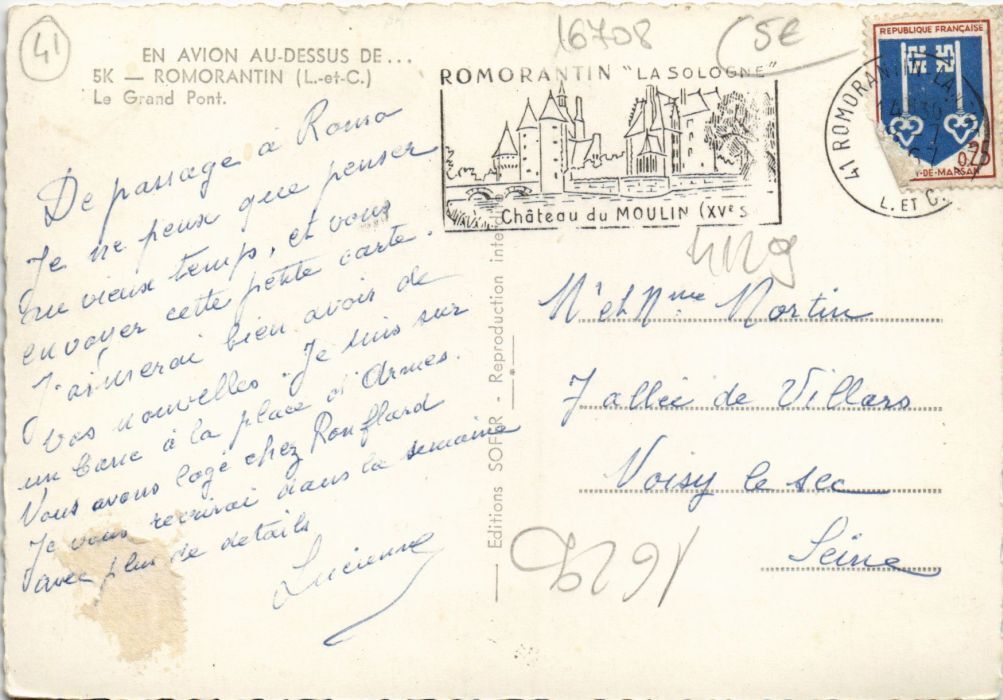 41
16708
5€
EN AVION AU-DESSUS DE...
5K — ROMORANTIN (L.-et-C.)
Le Grand Pont.
ROMORANTIN "LA SOLOGNE"
Château du MOULIN (XVe S
REPUBLIQUE FRANÇAISE
0,25
-DE-MARSAN
41 ROMORANTIN-LAN
L. ET C.
De passage à Romo
Je ne peux que penser
au vieux temps, et vous
envoyer cette petite carte.
J'aimerai bien avoir de
vos nouvelles. Je suis sur
un banc à la place d'Armes.
Nous avons logé chez Ronflard
Je vous recrirai dans la semaine
avec plus de details
Lucienne
Editions SOFER - Reproduction inter
Mr et Mme Martin
7 allée de Villars
Noisy le sec
Seine